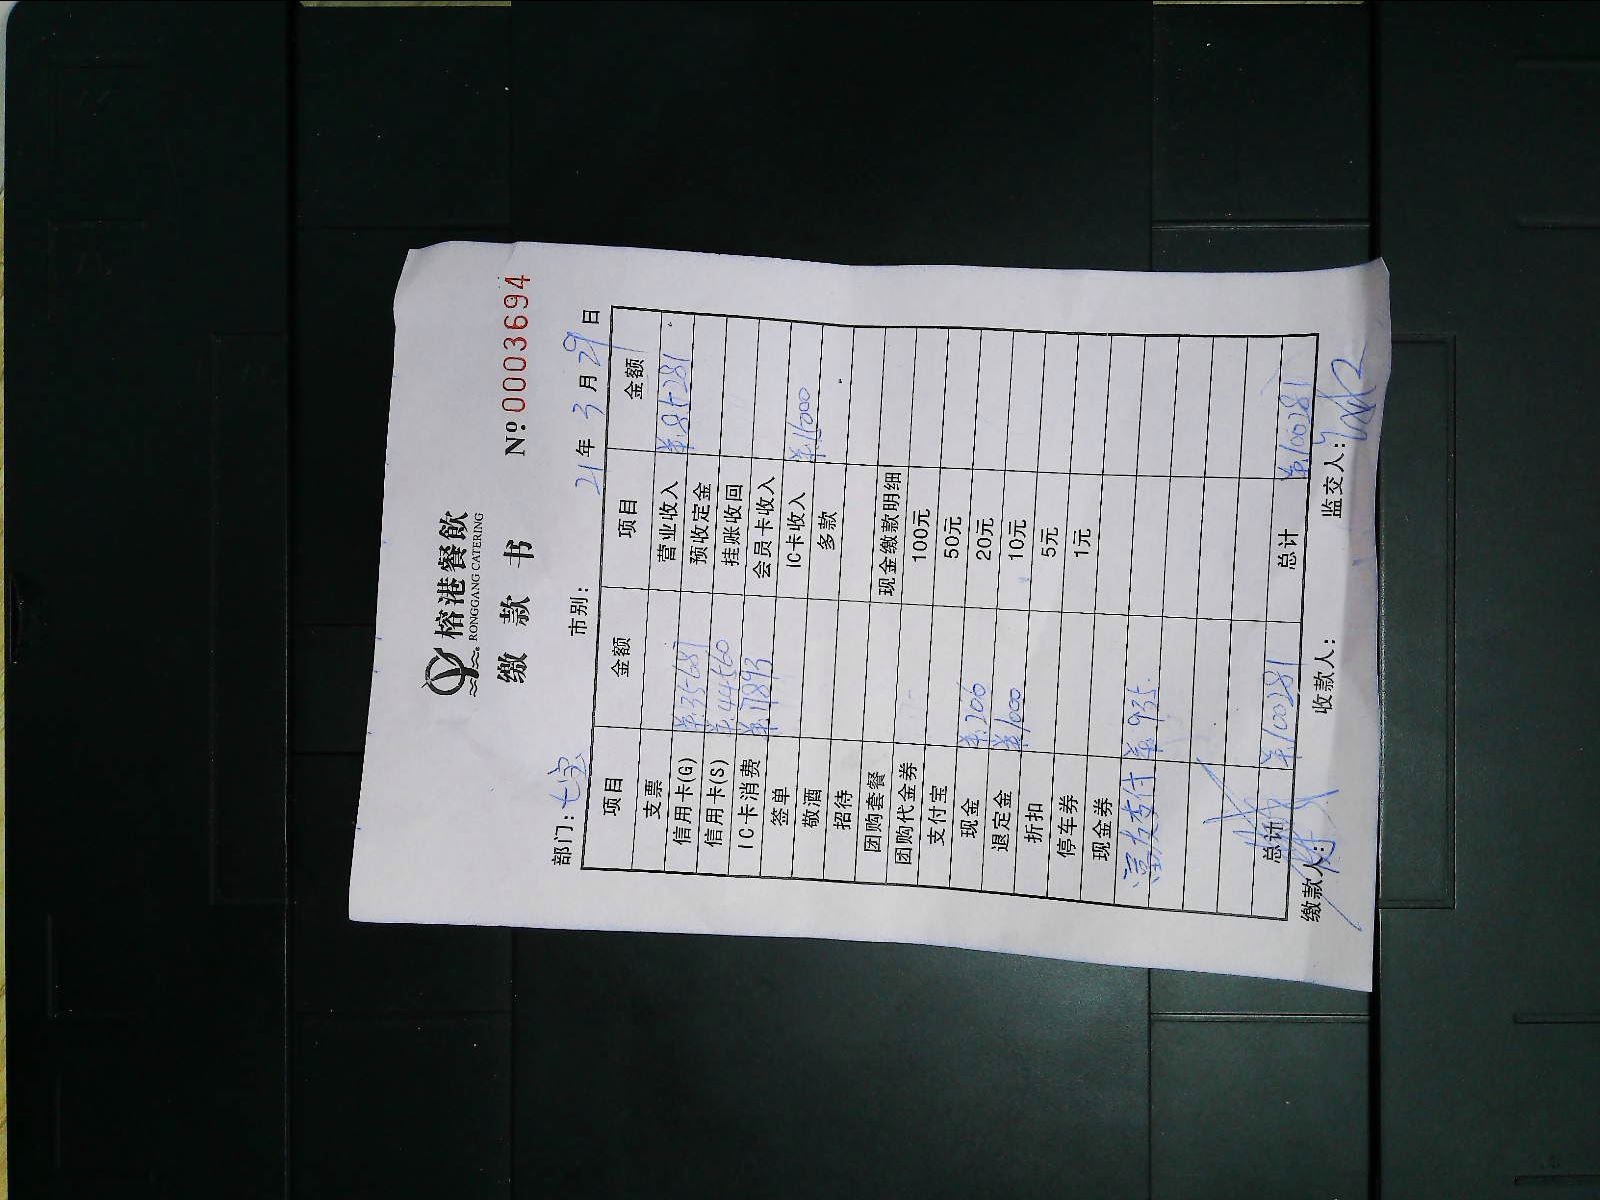 榕港餐飲
RONGGANG CATERING
缴 款 书 Nº 0003694
部门: 七宝 市别: 21 年 3 月 29 日
项目 金额 项目 金额
支票 营业收入 ¥84281
信用卡(G) ¥35687 预收定金
信用卡(S) ¥44560 挂账收回
IC卡消费 ¥17893 会员卡收入
签单 IC卡收入 ¥16000
敬酒 多款
招待
团购套餐 现金缴款明细
团购代金券 100元
支付宝 50元
现金 ¥206 20元
退定金 ¥1000 10元
折扣 5元
停车券 1元
现金券
富友支付 ¥935
总计 ¥100281 总计 ¥100281
缴款人: 收款人: 监交人: